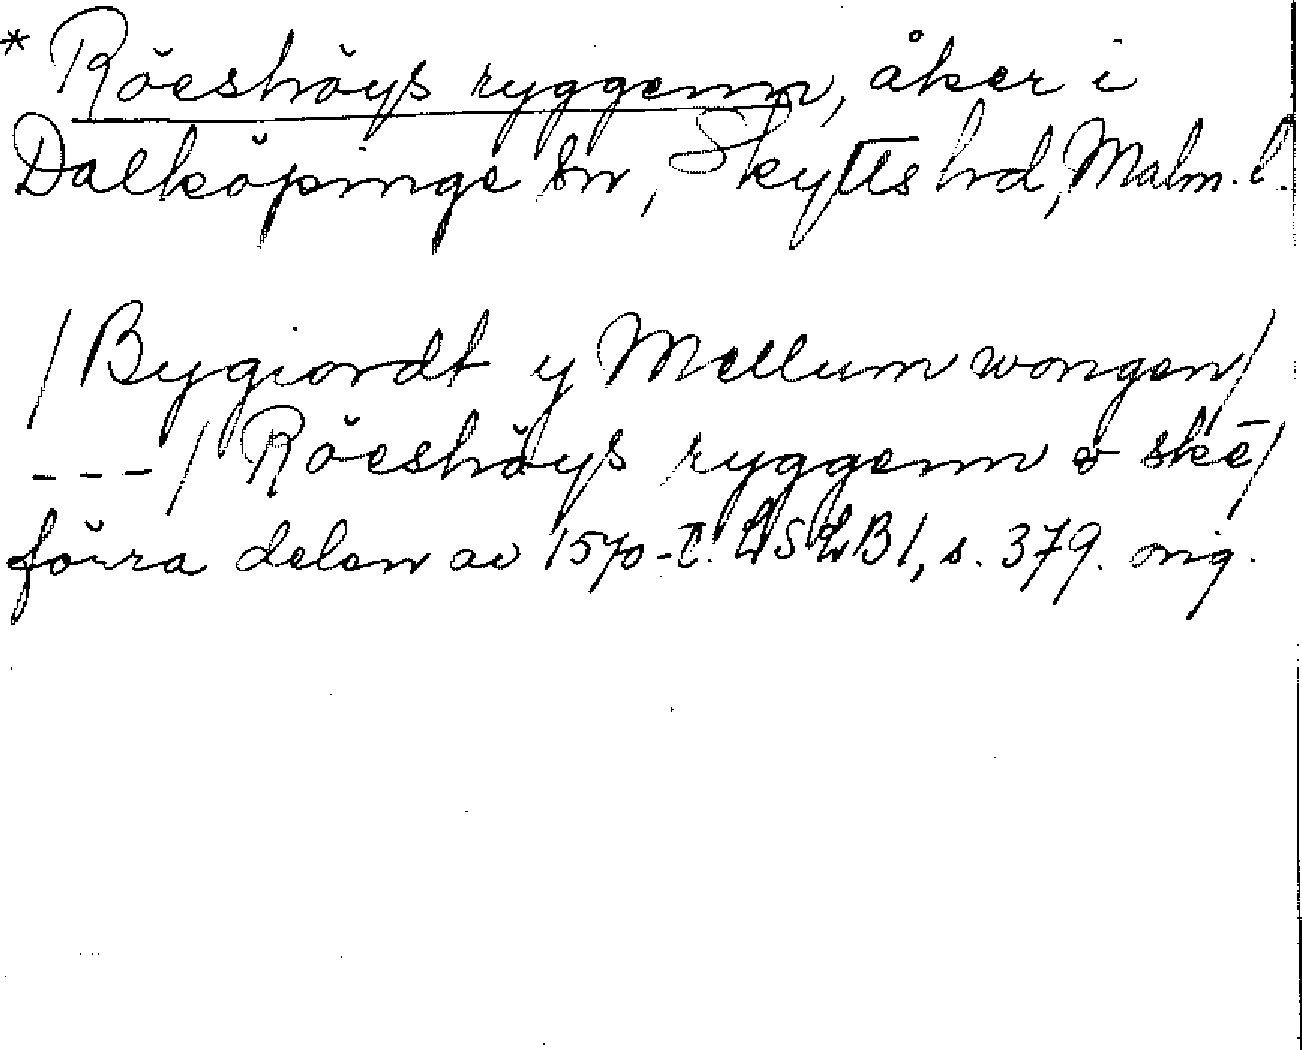 * Röeshöys ryggenn, åker i
Dalköpinge sn, Skytts hd, Malm. l.
/Bygiordt y Mellum wongen/
---/Röeshöys ryggenn ... skē/
förra delen av 1570-t. LSLB1, s. 379. orig.